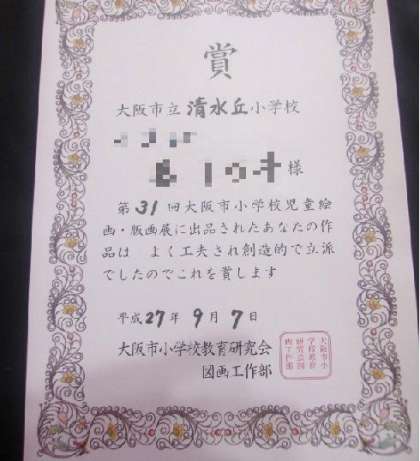 賞
大阪市立清水丘小学校
様
第31回大阪市小学校児童絵
画・版画展に出品されたあなたの作
品は よく工夫され創造的で立派
でしたのでこれを賞します
平成27年9月7日
大阪市小学校教育研究会
図画工作部